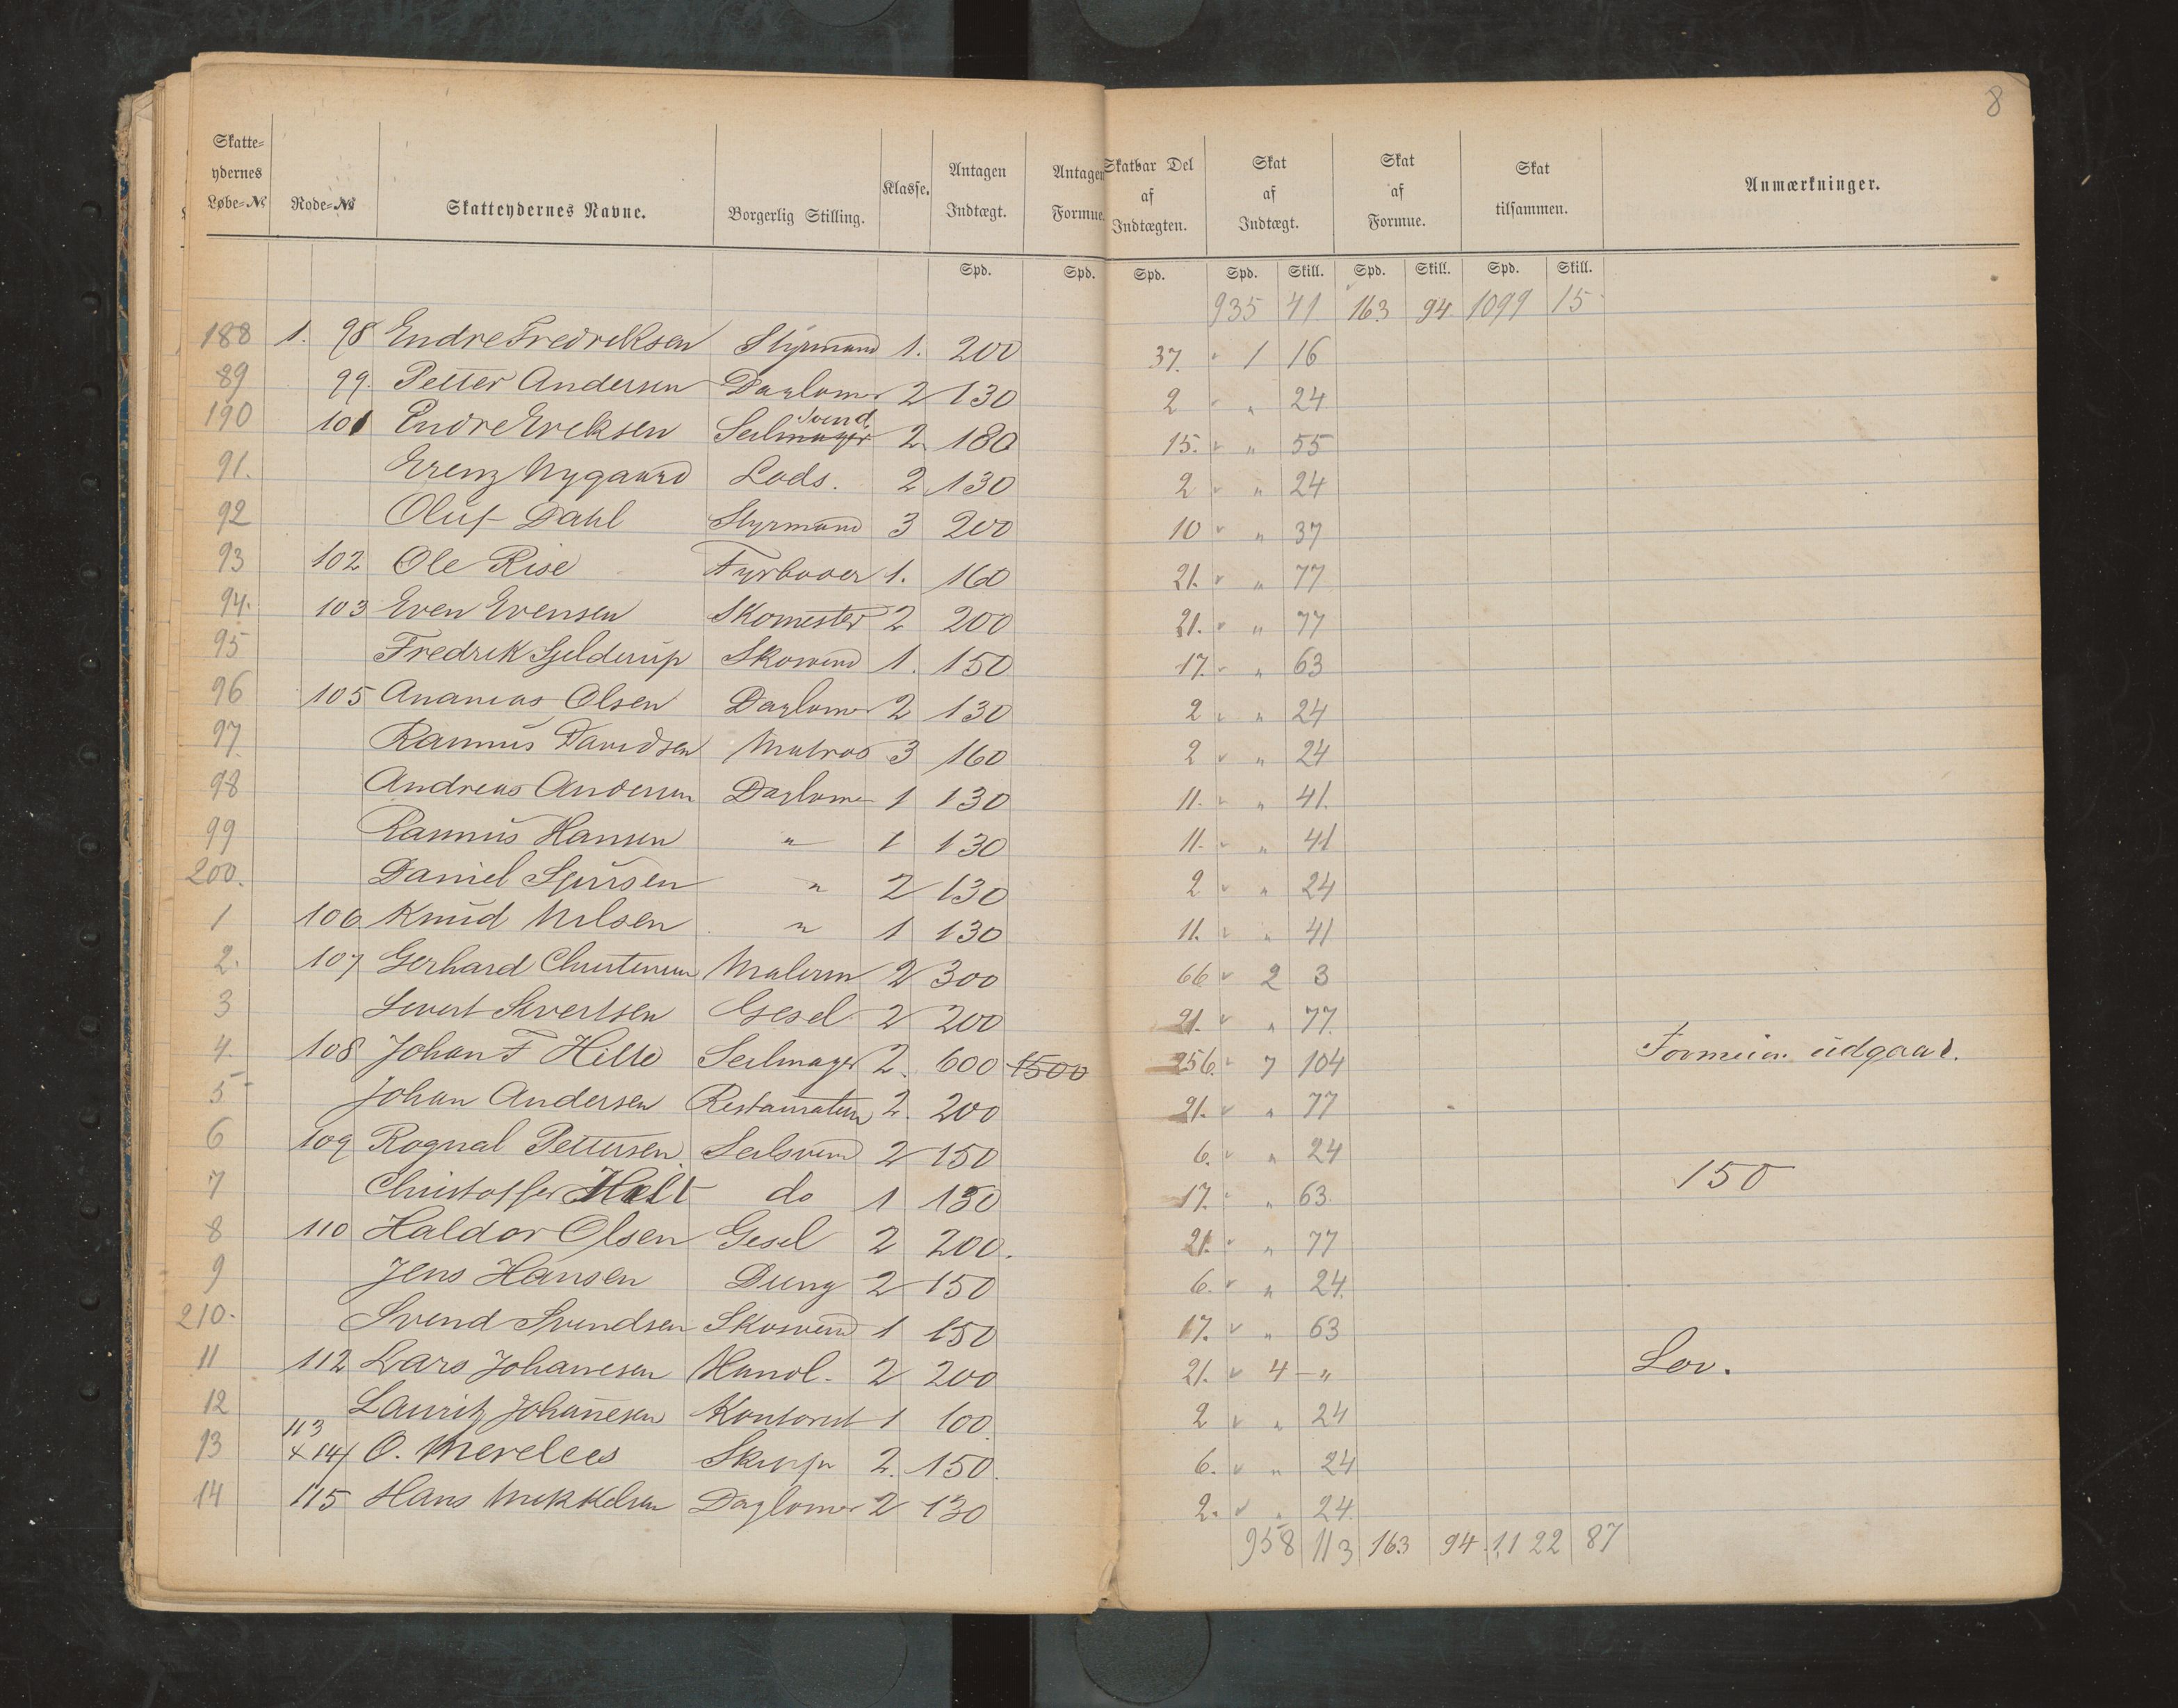 8
Skatte-ydernes Løbe-№ Rode-№ Skatteydernes Navne. Borgerlig Stilling. Klasse. Antagen Indtægt. Antagen Formue. Skatbar Del af Indtægten. Skat af Indtægt. Skat af Formue. Skat tilsammen. Anmærkninger.
Spd. Spd. Spd. Spd. Skill. Spd. Skill. Spd. Skill.
935 41 163 94 1099 15
188 1. 98 Endre Fredreksen Styrmand 1. 200 37. 1 16
89 99. Petter Andersen Daglønner 2 130 2 " 24
190 101 Endre Ereksen Seilmager Svend 2 180 15. " 55
91. Erenz Nygaard Lods. 2 130 2 " 24
92 Oluf Dahl Styrmand 3 200 10 " 37
93 102 Ole Rise Fyrbøder 1. 160 21. " 77
94. 103 Even Evensen Skomester 2 200 21. " 77
95 Fredrek Gjelderup Skosvend 1. 150 17. " 63
96 105 Ananias Olsen Daglønner 2 130 2 " 24
97 Rasmus Davidsen Matros 3 160 2 " 24
98 Andreas Andersen Daglønner 1 130 11. " 41.
99 Rasmus Hansen " 1 130 11. " 41
200. Daniel Sjursen " 2 130 2 " 24
1 106 Knud Nilsen " 1 130 11. " 41
2. 107 Gerhard Christensen Malersv 2 300 66 2 3
3 Severt Sivertsen Gesel 2 200 21. " 77.
4. 108 Johan F Hille Seilmager 2. 600 1500 256. 7 104 Formuen udgaar.
5 Johan Andersen Restauratieur 2. 200 21. " 77
6 109 Rognal Pettersen Seilsvend 2 150 6. " 24
7 Christoffer Holt do 1 150 17. " 63. 150
8 110 Haldor Olsen Gesel 2 200. 21. " 77
9 Jens Hansen 2 150 6. " 24.
210. Svend Svendsen Skosvend 1 150 17. " 63
11 112 Lars Johannesen Handl. 2 200 21. 4 - " Lov.
12 Lauritz Johannesen Kontorist 1 100. 2 " 24
13 113 x 14 O. Merelees Skipper 2. 150. 6. " 24
14 115 Hans Mekkelsen Daglønner 2 130 2. " 24.
958 113 163 94 1122 87